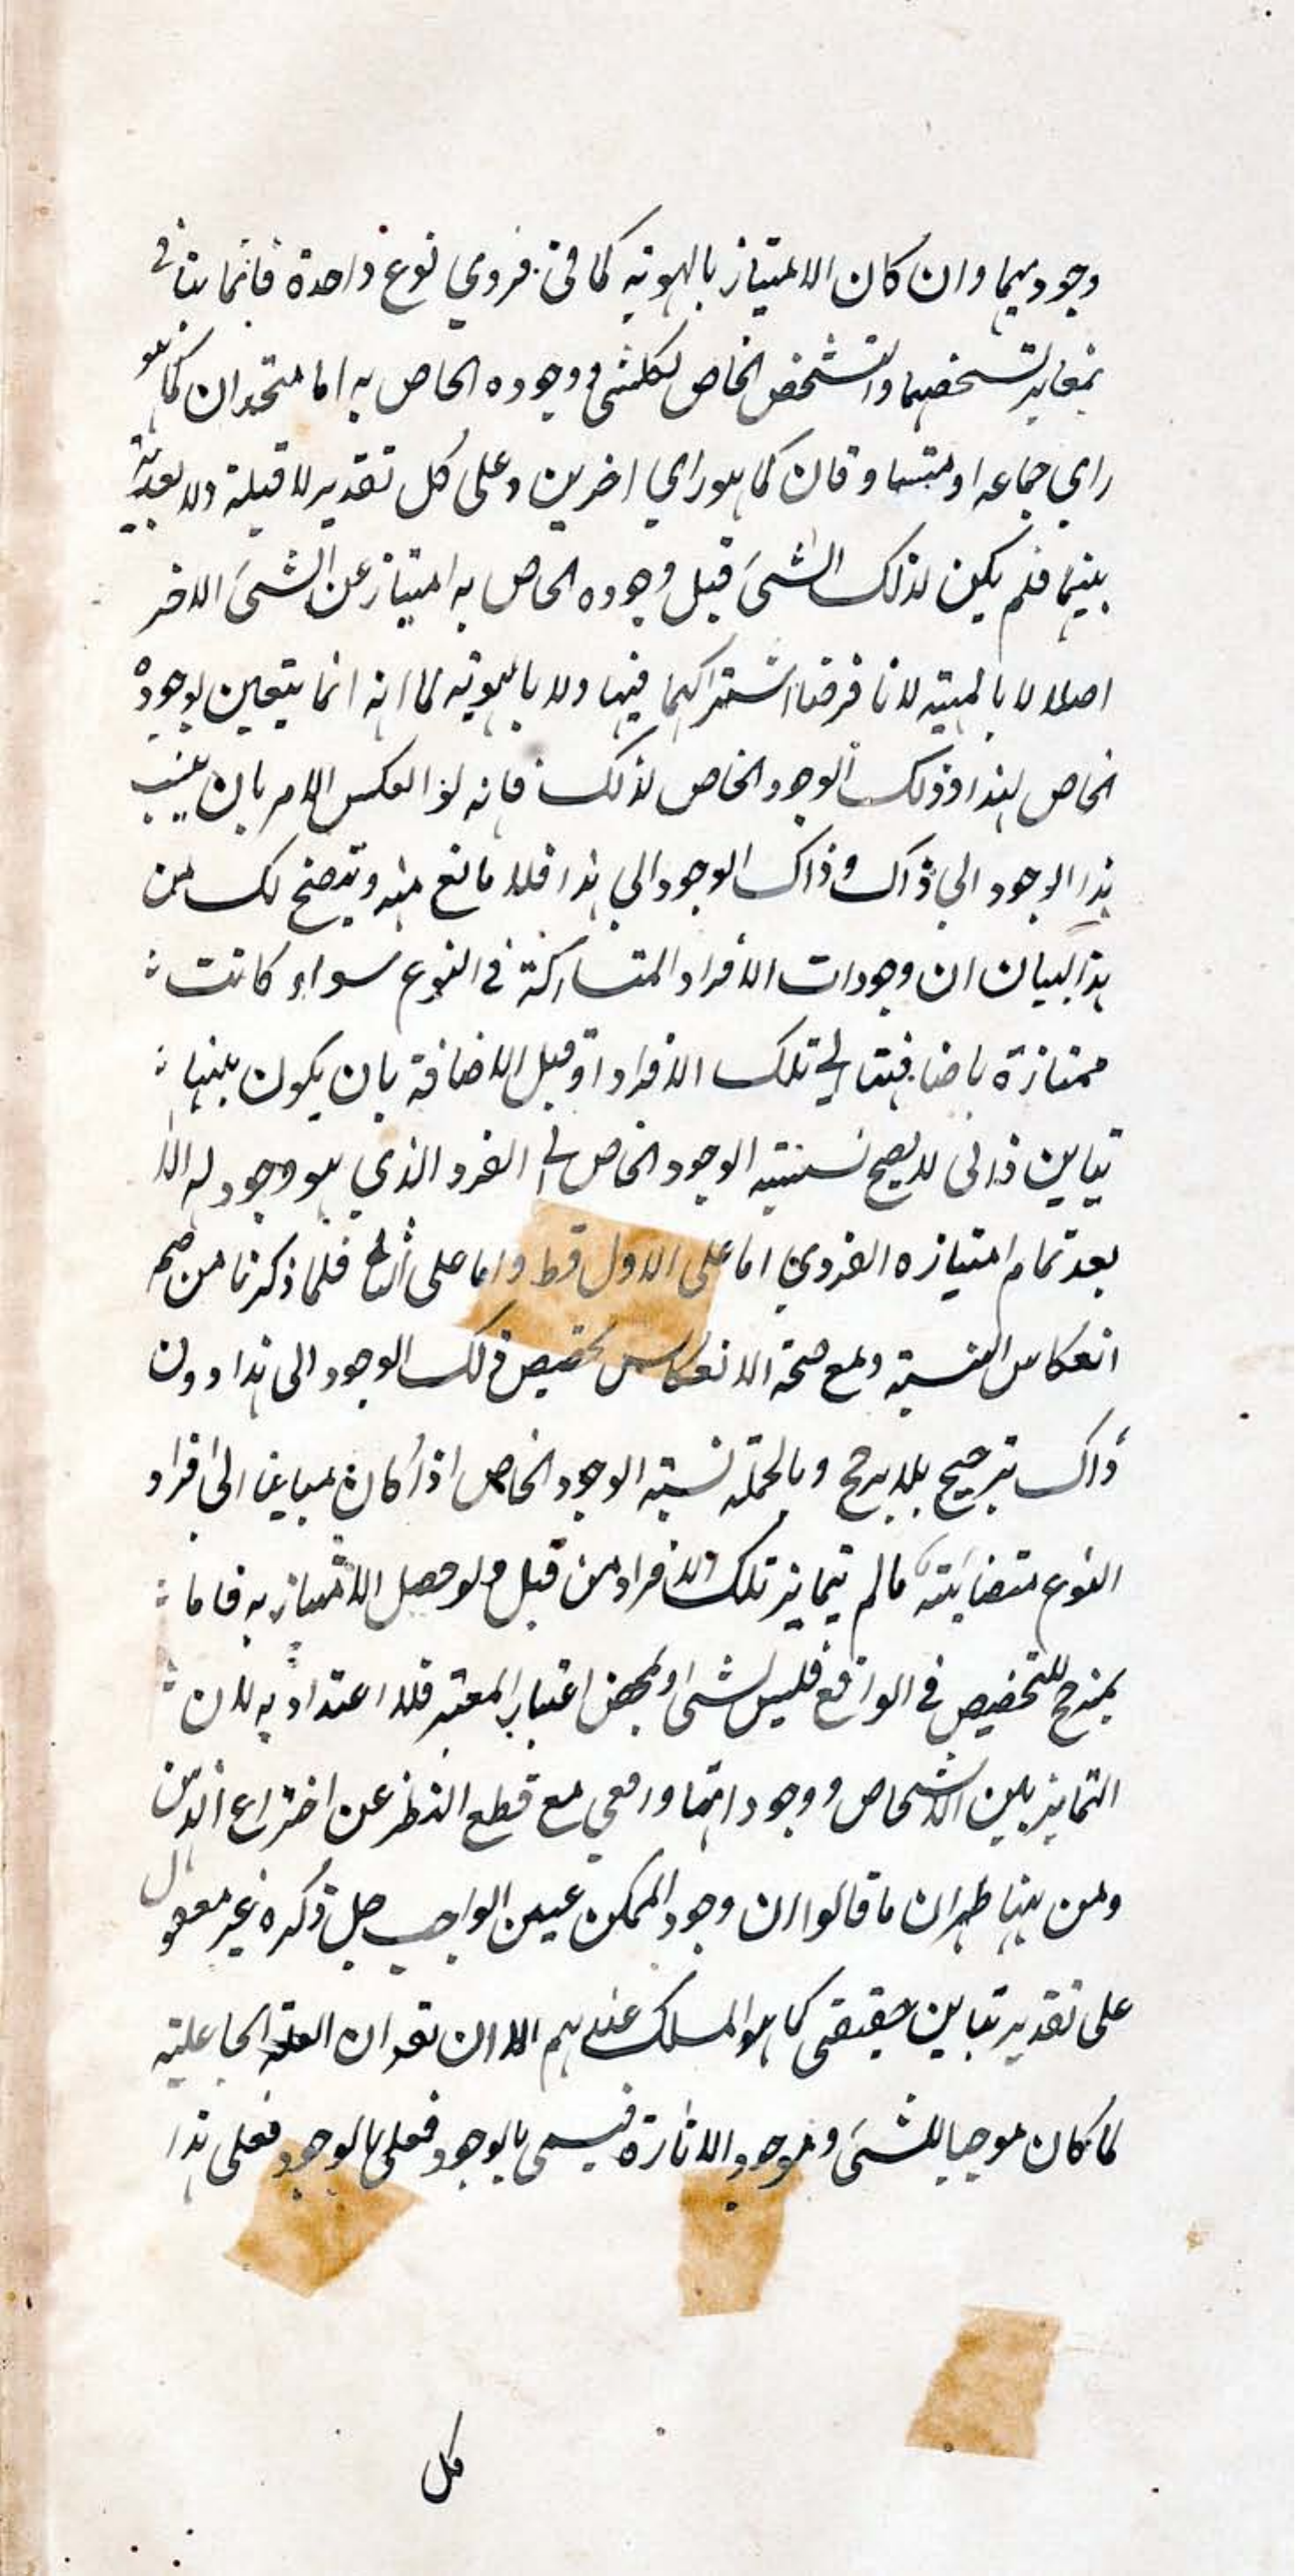 وجوديهما وان كان الامتياز بالهوية كما في فردي نوع واحدة فانما يتأتى
بتغاير تشخصهما والتشخص الخاص لكلشى ووجوده الخاص به اما متحدان كما هو
راي جماعه او متساوقان كما هو راي اخرين وعلى كل تقدير لا قبلية ولا بعدية
بينهما فلم يكن لذلك الشىَ قبل وجوده الخاص به امتياز عن الشىَ الاخر
اصلا لا بالمهية لانا فرضنا اشتراكهما فيها ولا بالهوية لما انه انما يتعين بوجوده
الخاص لهذا وذلك الوجود الخاص لذلك فانه لو انعكس الامر بان ينسب
هذا الوجود الي ذاك وذاك الوجود الي هذا فلا مانع منه ويتضح لك من
هذا البيان ان وجودات الافراد المتشاركة في النوع سواء كانت
ممتازة باضافتها الى تلك الافراد او قبل الاضافة بان يكون بينها
تباين ذاتى لا يصح نسبته الوجود الخاص الى الفرد الذي هو وجود له الا
بعد تمام امتيازه الفردي اما على الاول فظ واما على الثاني فلما ذكرنا من صحه
انعكاس النسبة ومع صحة الانعكاس تخصيص ذلك الوجود الى هذا دون
ذاك ترجيح بلا مرجح وبالجملة نسبته الوجود الخاص اذا كان مباينا الى افراد
النوع متضايته مالم يتمايز تلك الافراد من قبل ولو حصل الامتياز به فاما
بمرجح للتخصيص في الواقع فليس لشىَ او بمحض اعتبار المعتبر فلا اعتداد به لان
التمايز بين الاشخاص ووجوداتها واقعي مع قطع النظر عن اختراع الذهن
ومن هنا ظهر ان ما قالوا ان وجود الممكن عين الواجب جل ذكره غير معقول
على تقدير تباين حقيقى كما هو المسلك عندهم الا ان نقو ان العلة الجاعلية
لما كان موجبا للشىَ وموجود الاثاره فيسمى بالوجود فعلى بالوجود فعلى هذا
كل